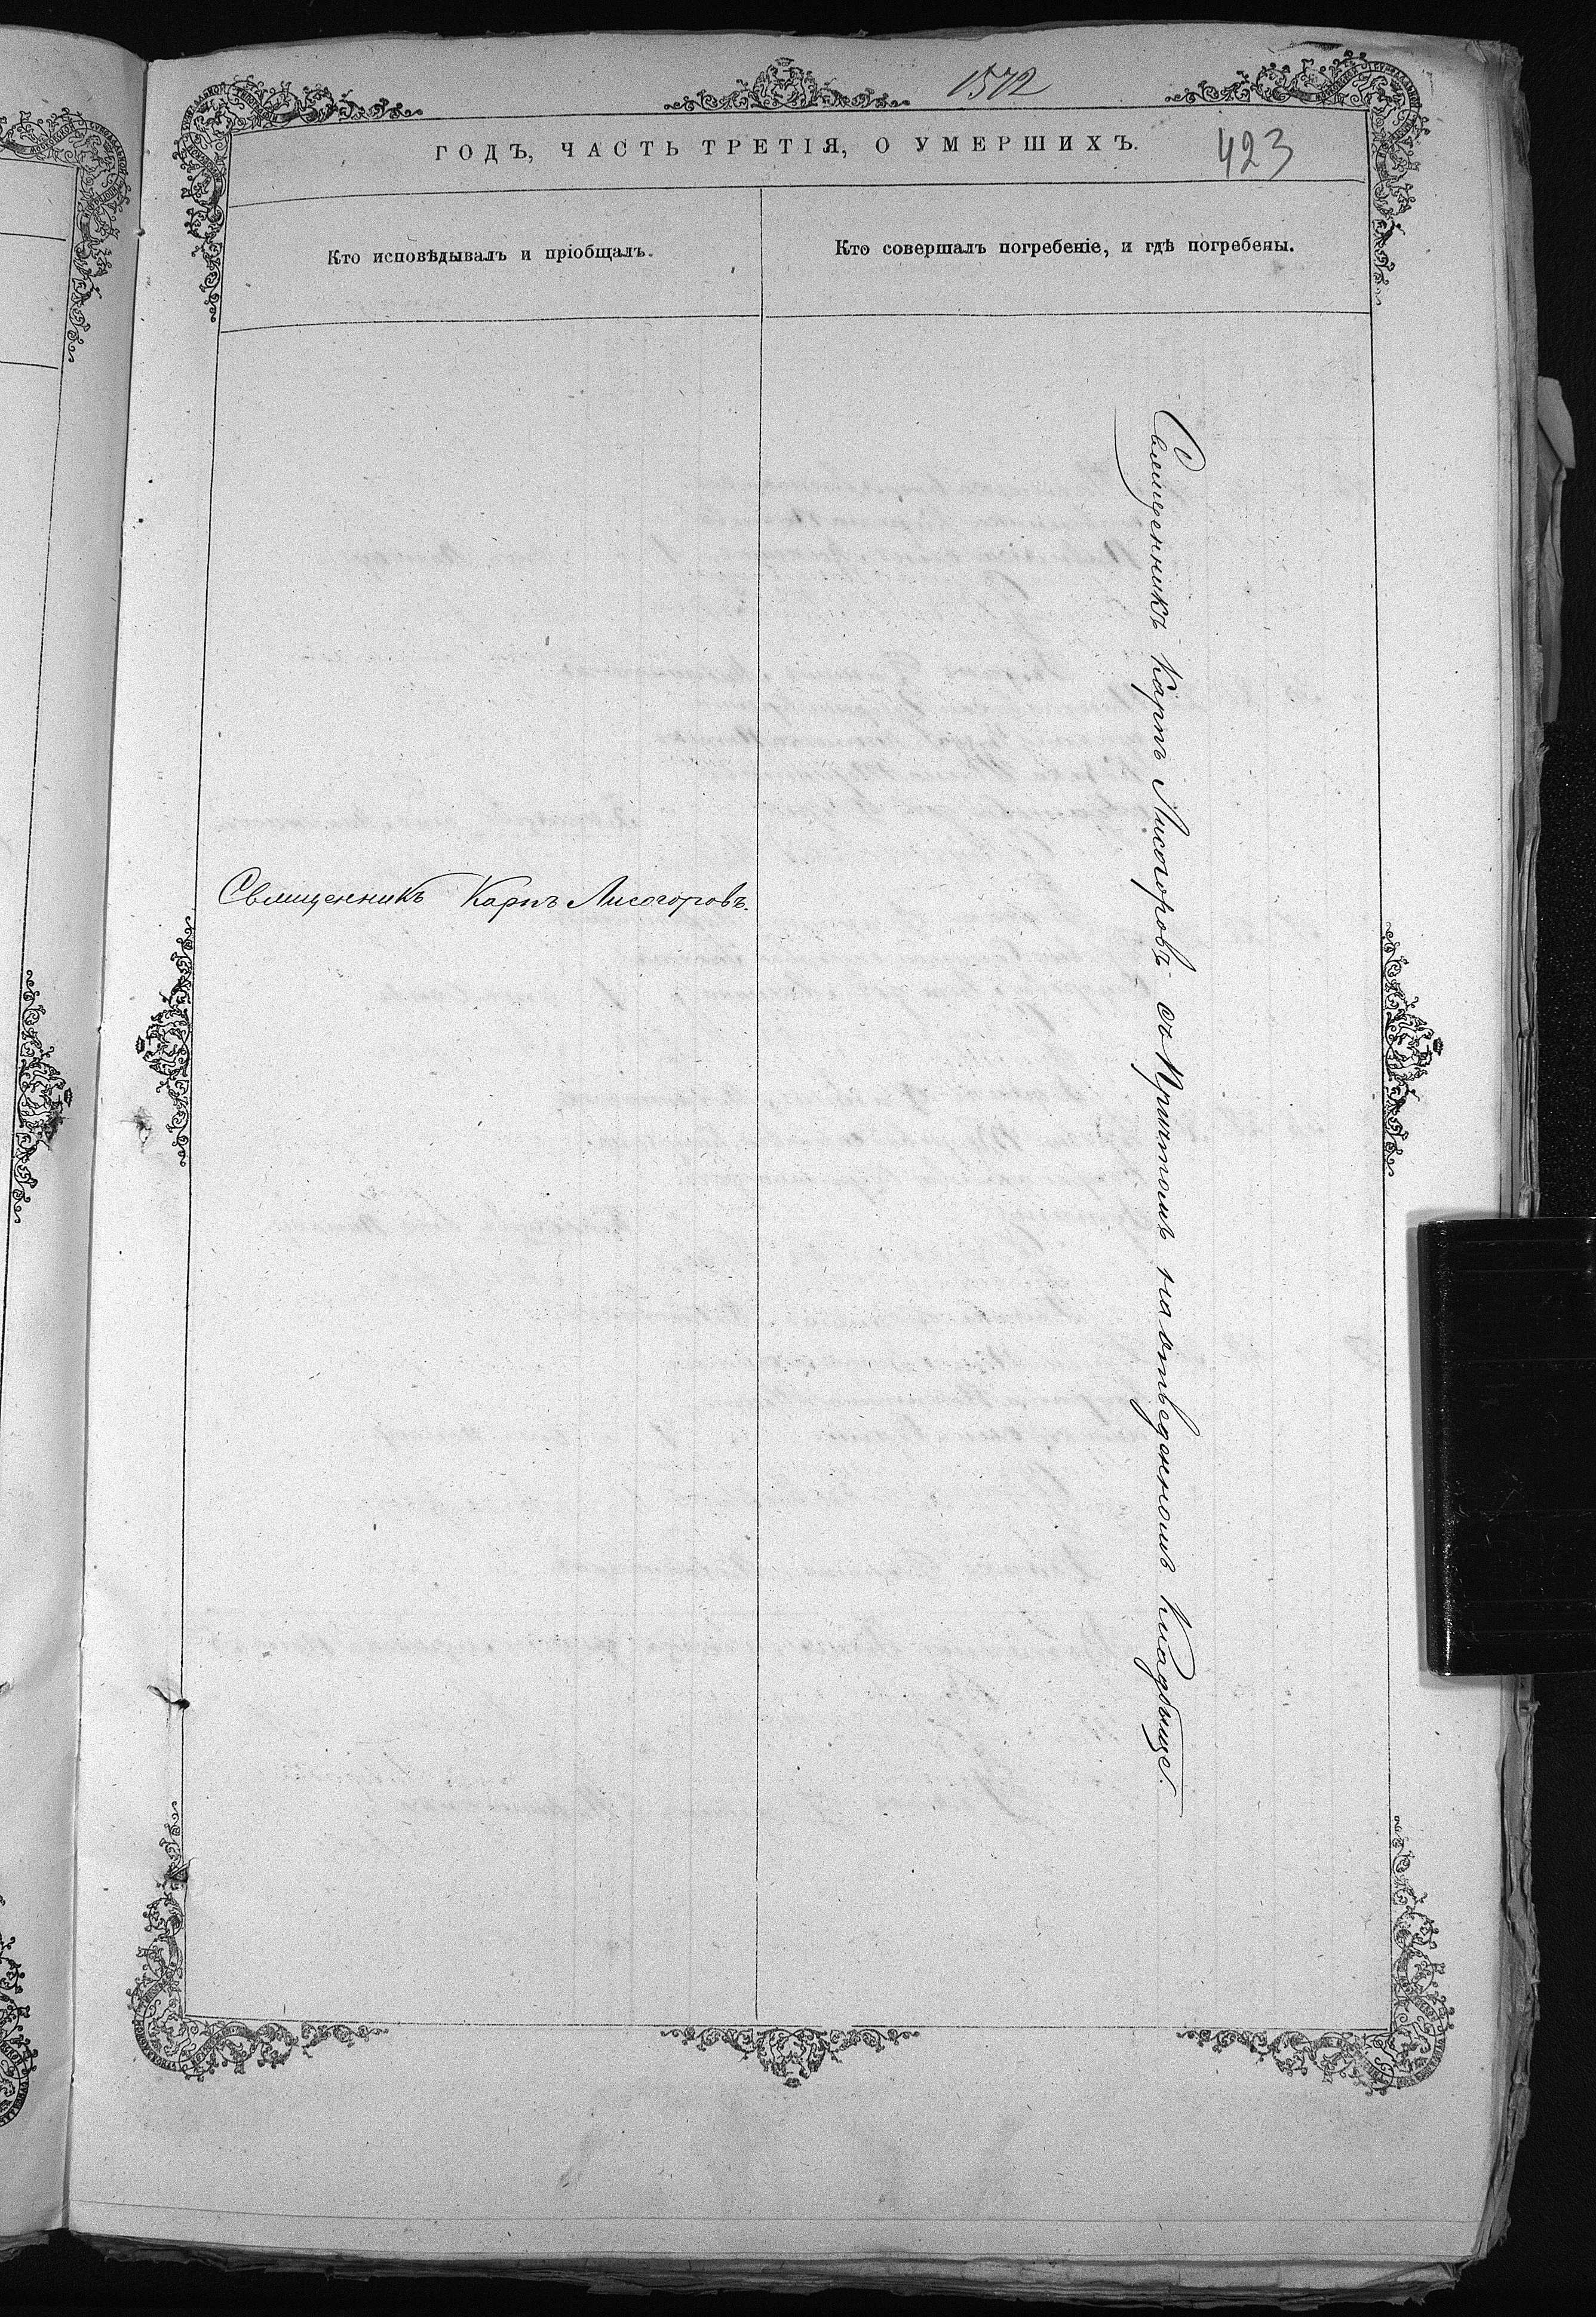 1572
423
ГОДЪ, ЧАСТЬ ТРЕТІЯ, О УМЕРШИХЪ.
Кто исповѣдывалъ и пріобщалъ.
Кто совершалъ погребеніе, и гдѣ погребены.
Священникъ Карпъ Лисогоровъ.
Священникъ Карпъ Лисогоровъ съ Причтомъ на отведенномъ Кладбище.